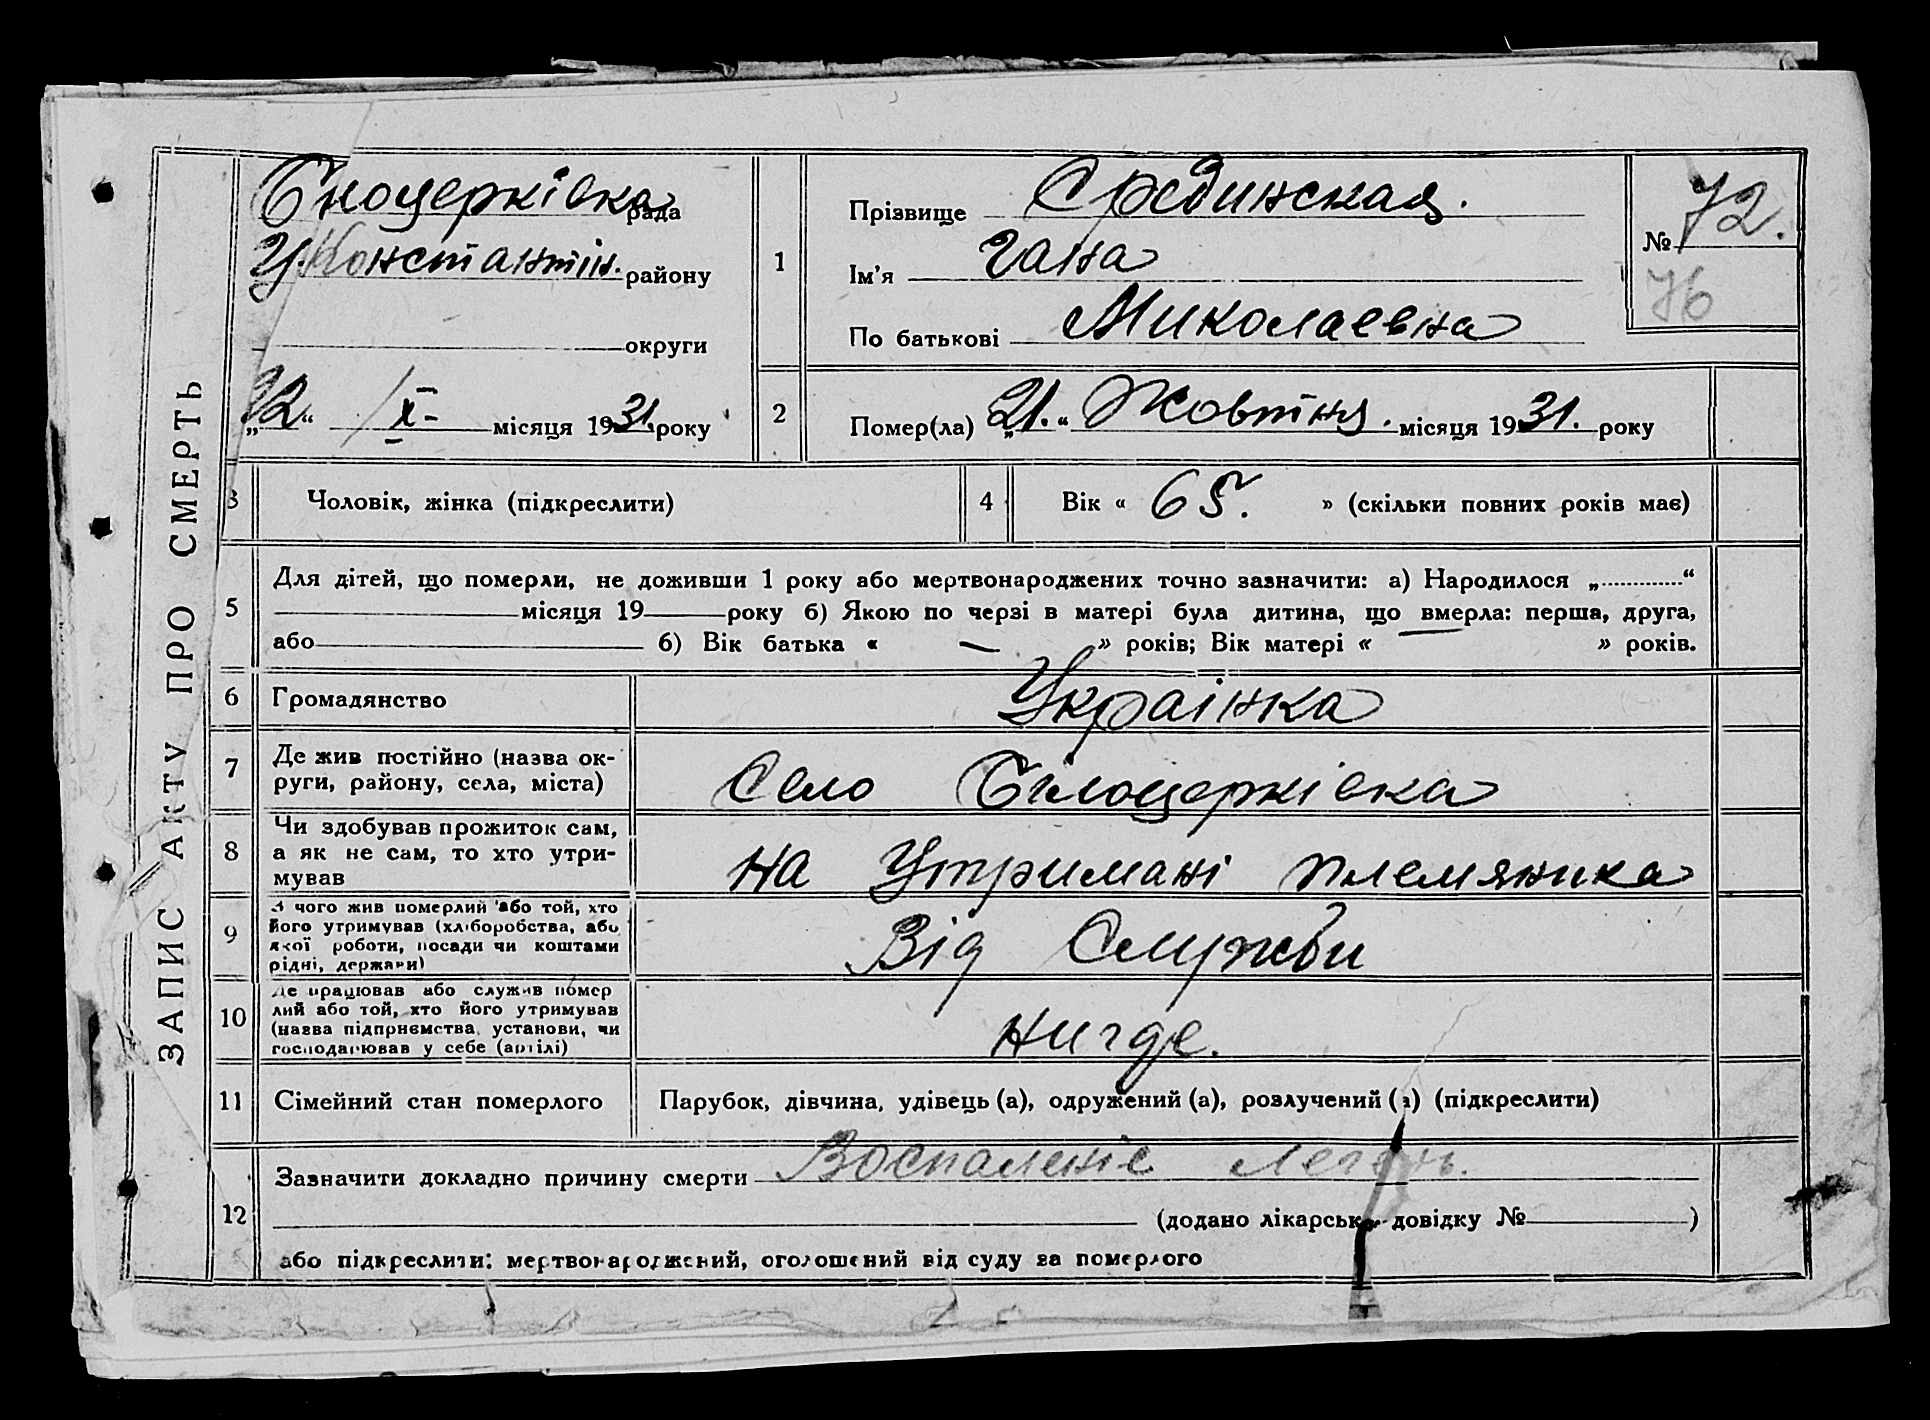 ЗАПИС АКТУ ПРО СМЕРТЬ
Білоцерківка рада
У. Константін. району
округи
„22“ /X- місяця 1931. року
1
Прізвище Срединская.
Ім’я Гана
По батькові Миколаевна
№ 72.
76
2
Помер(ла) „21.“ Жовтня. місяця 1931. року
3
Чоловік, жінка (підкреслити)
4
Вік « 65. » (скільки повних років має)
5
Для дітей, що померли, не доживши 1 року або мертвонароджених точно зазначити: а) Народилося „ “
місяця 19 року б) Якою по черзі в матері була дитина, що вмерла: перша, друга,
або б) Вік батька « — » років; Вік матері « — » років.
6
Громадянство
Украінка
7
Де жив постійно (назва ок-
руги, району, села, міста)
Село Білоцерківка
8
Чи здобував прожиток сам,
а як не сам, то хто утри-
мував
на Утримані племяника
9
З чого жив померлий або той, хто
його утримував (хліборобства, або
якої роботи, посади чи коштами
рідні, держави)
Від Служби
10
Де працював або служив помер
лий або той, хто його утримував
(назва підприємства, установи, чи
господарював у себе (артілі)
нигде.
11
Сімейний стан померлого
Парубок, дівчина, удівець (а), одружений (а), розлучений (а) (підкреслити)
12
Зазначити докладно причину смерти Воспаленіе Легень.
(додано лікарськ довідку № )
або підкреслити: мертвонароджений, оголошений від суду за померлого